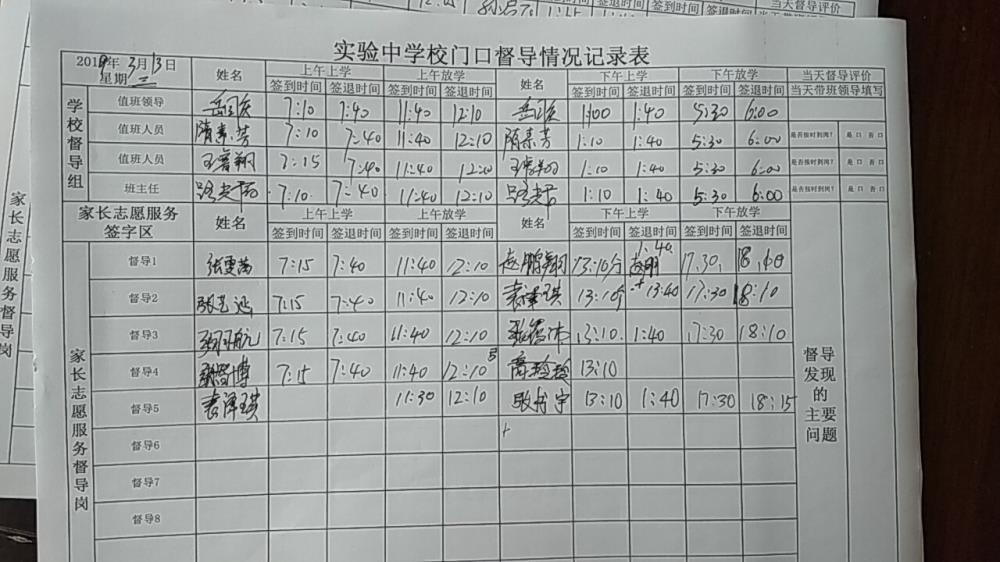 实验中学校门口督导情况记录表
2019年3月13日 星期三 姓名 上午上学 上午放学 姓名 下午上学 下午放学 当天督导评价
签到时间 签退时间 签到时间 签退时间 签到时间 签退时间 签到时间 签退时间 当天带班领导填写
学校督导组
值班领导 7:10 7:40 11:40 12:10 1:00 1:40 5:30 6:00
值班人员 隋素芳 7:10 7:40 11:40 12:10 隋素芳 1:10 1:40 5:30 6:00 是否按时到岗? 是口 否口
值班人员 7:15 7:40 11:40 12:10 1:10 1:40 5:30 6:00 是否按时到岗? 是口 否口
班主任 7:10 7:40 11:40 12:10 1:10 1:40 5:30 6:00 是否按时到岗? 是口 否口
家长志愿服务签字区 姓名 上午上学 上午放学 姓名 下午上学 下午放学
签到时间 签退时间 签到时间 签退时间 签到时间 签退时间 签到时间 签退时间
家长志愿服务督导岗
督导1 7:15 7:40 11:40 12:10 赵鹏翔 13:10分 1:40 17:30
督导2 张艺延 7:15 7:40 11:40 12:10 袁泽琪 13:10 13:40 17:30 18:10
督导3 7:15 7:40 11:40 12:10 13:10 1:40 17:30 18:10
督导4 7:15 7:40 11:40 12:10 13:10
督导5 袁泽琪 11:30 12:10 13:10 1:40 17:30 18:15
督导6
督导7
督导8
督导发现的主要问题
家长志愿服务督导岗
签到时间 签退时间 签到时间 签退时间 当天督导评价